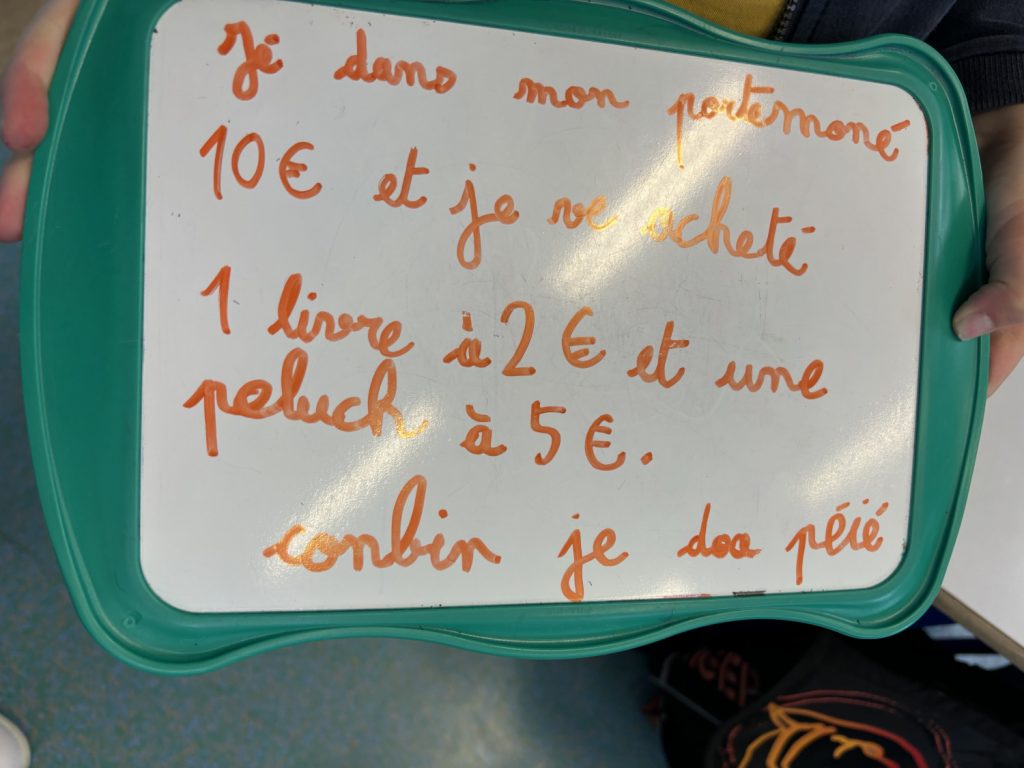 Jé dans mon portemoné
10€ et je ve acheté
1 livre à 2€ et une
peluch à 5€.
conbin je doa péié